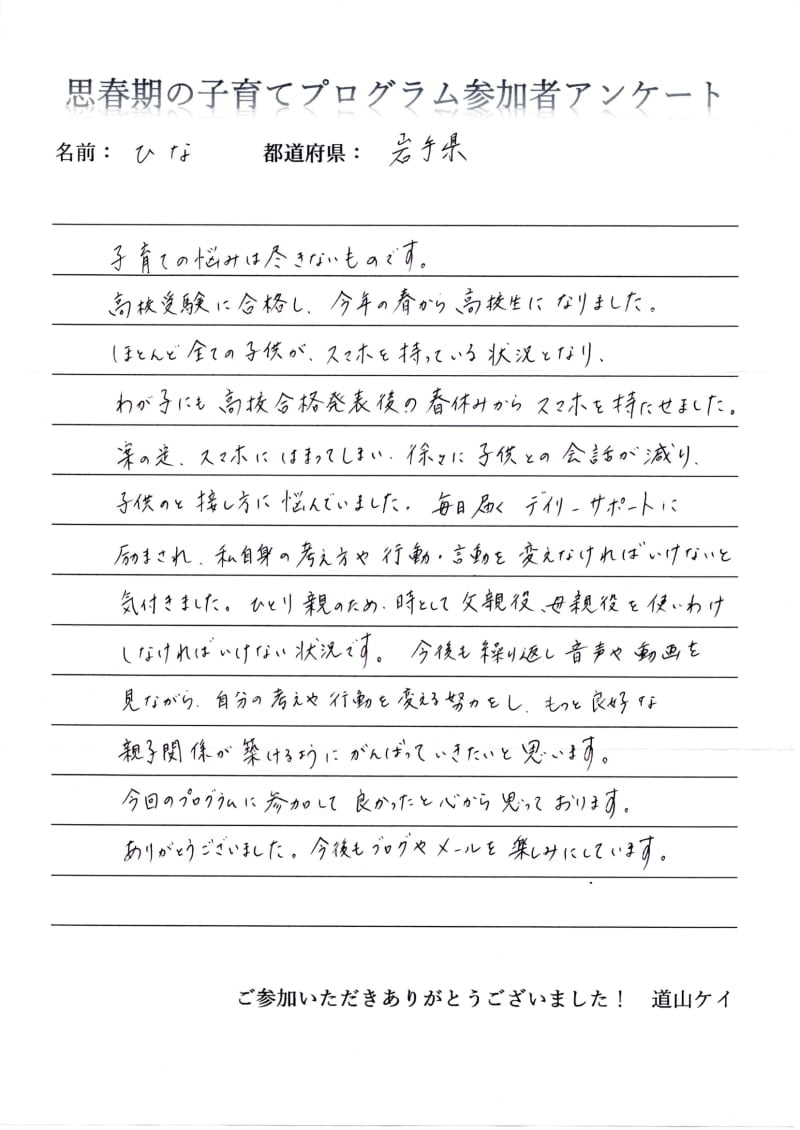 思春期の子育てプログラム参加者アンケート
名前： ひな 都道府県： 岩手県
子育ての悩みは尽きないものです。
高校受験に合格し、今年の春から高校生になりました。
ほとんど全ての子供が、スマホを持っている状況となり、
わが子にも高校合格発表後の春休みからスマホを持たせました。
案の定、スマホにはまってしまい、徐々に子供との会話が減り、
子供のと接し方に悩んでいました。毎日届くデイリーサポートに
励まされ、私自身の考え方や行動・言動を変えなければいけないと
気付きました。ひとり親のため、時として父親役、母親役を使いわけ
しなければいけない状況です。今後も繰り返し音声や動画を
見ながら、自分の考えや行動を変える努力をし、もっと良好な
親子関係が築けるようにがんばっていきたいと思います。
今回のプログラムに参加して良かったと心から思っております。
ありがとうございました。今後もブログやメールを楽しみにしています。
ご参加いただきありがとうございました！ 道山ケイ